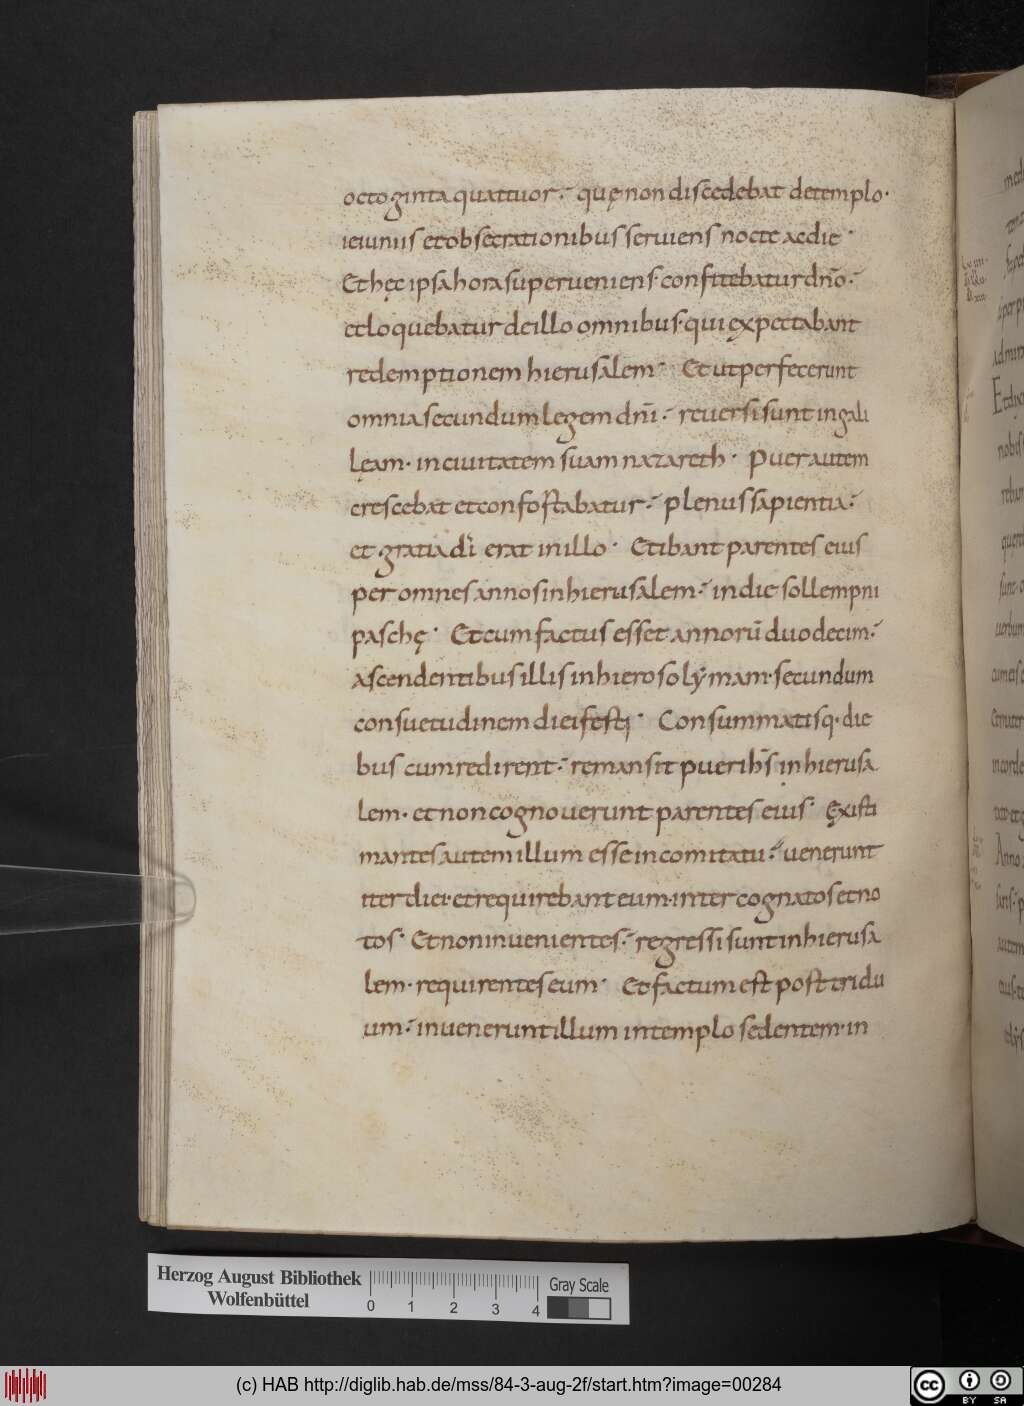 octoginta quattuor·́ quę non discedebat de templo·
ieiuniis et obsecrationibus seruiens nocte ac die·
Et hęc ipsa hora superueniens· confitebatur dn̄o·́
et loquebatur de illo omnibus· qui expectabant
redemptionem hierusalem· Et ut perfecerunt
omnia secundum legem dn̄i·́ reuersi sunt in gali
lęam· in ciuitatem suam nazareth· Puer autem
crescebat et confortabatur·́ plenus sapientia·́
et gratia dī erat in illo· Et ibant parentes eius
per omnes annos in hierusalem·́ in die sollempni
paschę· Et cum factus esset annorū duodecim·́
ascendentibus illis in hierosolẏmam· secundum
consuetudinem diei festi· Consummatisq· die
bus cum redirent·́ remansit puer ih̄s in hierusa
lem· et non cognouerunt parentes eius· Existi
mantes autem illum esse in comitatu·́ uenerunt
iter diei· et requirebant eum· inter cognatos et no
tos· Et non inuenientes·́ regressi sunt in hierusa
lem· requirentes eum· Et factum est post tridu
um·́ inuenerunt illum in templo sedentem· in
Herzog August Bibliothek
Wolfenbüttel
0 1 2 3 4
Gray Scale
(c) HAB http://diglib.hab.de/mss/84-3-aug-2f/start.htm?image=00284
cc BY SA